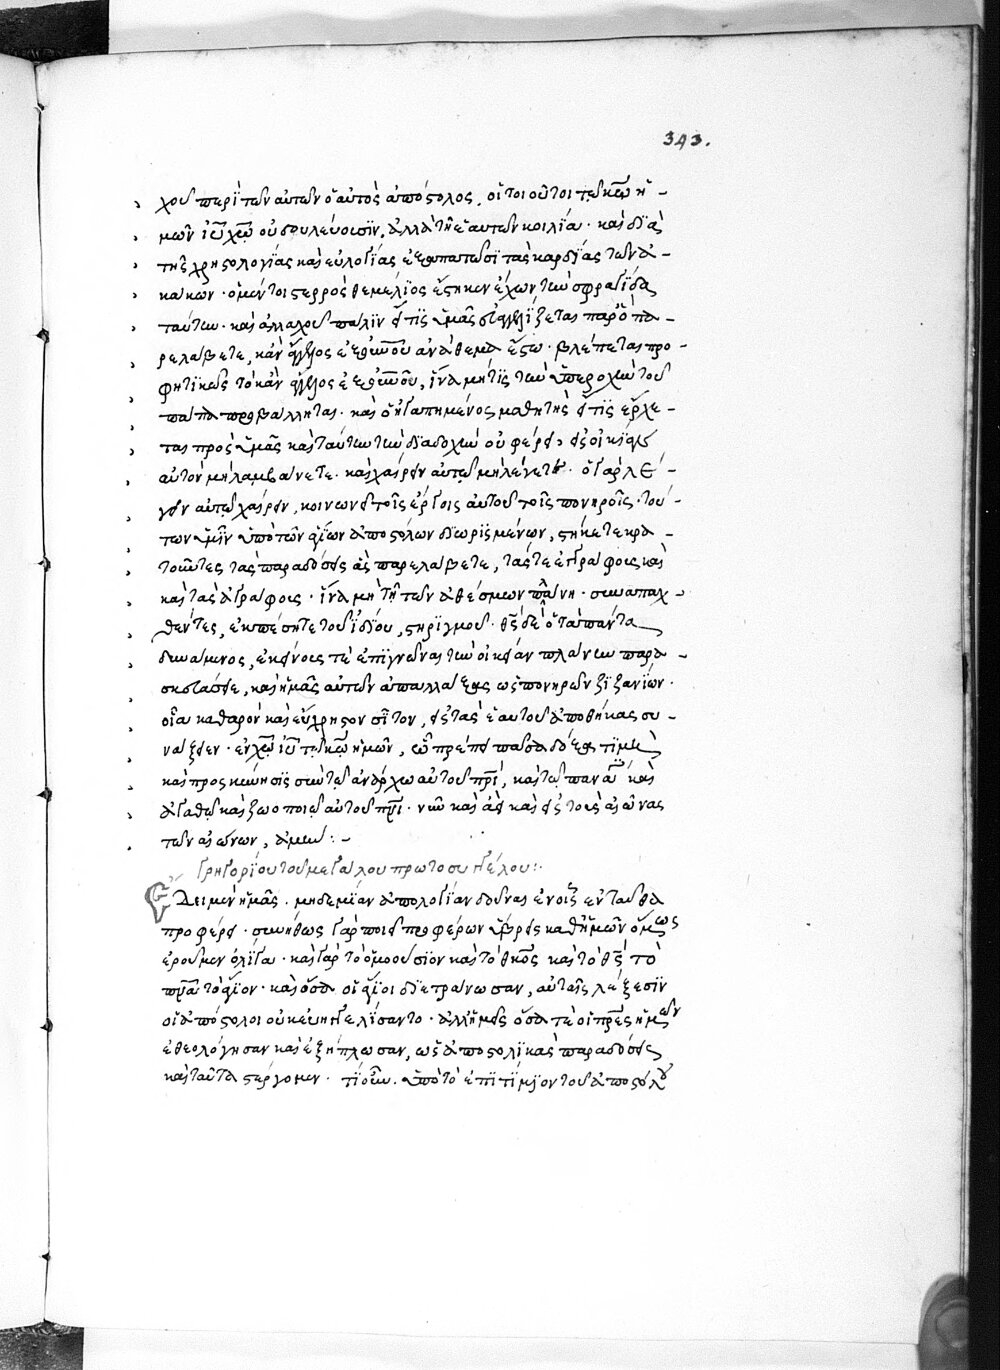 343.
χοῦ περὶ τῶν αὐτῶν ὁ αὐτὸς ἀπόστολος, οἱ τοιοῦτοι τῷ κω̅ ἡ-
μῶν ιυ̅ χω̅ οὐ δουλεύουσϊν, ἀλλὰ τῇ ἑαυτῶν κοιλίᾳ · καὶ δϊὰ
τῆς χρηστολογίας καὶ εὐλογίας ἐξαπατῶσϊ τὰς καρδίας τῶν ἀ-
κάκων · ὁ μέντοι στερρὸς θεμέλϊος ἕστηκεν ἔχων τὴν σφραγῖδα
ταύτην · καὶ ἀλλαχοῦ πάλϊν εἴ τϊς ὑμᾶς εὐαγγελίζεται παρ' ὃ πα-
ρελάβετε, κἂν ἄγγελος ἐξ οὐνοῦ ἀνάθεμα ἔστω · βλέπεται προ-
φητικῶς τὸ κἂν ἄγγελος ἐξ οὐνοῦ, ἵνα μήτϊς τὴν ὑπεροχὴν τοῦ
πάπα προβάλληται · καὶ ὁ ἠγαπημένος μαθητὴς εἴ τϊς ἔρχε-
ται πρὸς ὑμᾶς καὶ ταύτην τὴν δϊδαχὴν οὐ φέρει, εἰς οἰκίαν
αὐτὸν μὴ λαμβάνετε · καὶ χαίρειν αὐτῷ μὴ λέγετε · ὁ γὰρ λέ-
γων αὐτῷ χαίρειν, κοινωνεῖ τοῖς ἔργοις αὐτοῦ τοῖς πονηροῖς · τού-
των ὑμῖν ὑπὸ τῶν ἁγίων ἀποστόλων δϊωρϊσμένων, στήκετε κρα-
τοῦντες τὰς παραδόσεις ἃς παρελάβετε, τάς τε ἐγγράφους καὶ
καὶ τὰς ἀγράφους · ἵνα μὴ τῇ τῶν ἀθέσμων πλάνῃ · συναπαχ-
θέντες, ἐκπέσητε τοῦ ἰδίου, στηριγμοῦ · θς̅ δὲ ὁ τὰ πάντα
δυνάμενος, ἐκείνους τε ἐπιγνῶναι τὴν οἰκείαν πλάνην παρα-
σκευάσαι, καὶ ἡμᾶς αὐτῶν ἀπαλλάξας ὡς πονηρῶν ζϊζανίων ·
οἷα καθαρὸν καὶ εὔχρηστον σῖτον, εἰς τὰς ἑαυτοῦ ἀποθήκας συ-
νάξειεν · ἐν χω̅ ιυ̅ τῷ κω̅ ἡμῶν, ᾧ πρέπει πᾶσα δόξα τϊμὴ
καὶ προσκύνησϊς σὺν τῷ ἀνάρχῳ αὐτοῦ πρι̅, καὶ τῷ παναγίῳ καὶ
ἀγαθῷ καὶ ζωοποιῷ αὐτοῦ πνι̅ · νῦν καὶ ἀεὶ καὶ εἰς τοὺς αἰῶνας
τῶν αἰώνων, ἀμήν :-
Γρηγορίου τοῦ μεγάλου πρωτοσυγγέλου :·
Ἔδει μὲν ἡμᾶς · μηδεμίαν ἀπολογίαν δοῦναι ἐν οἷς ἐνταῦθα
προφέρει · συνήθως γὰρ ποιεῖ προφέρων ὕβρεις καθ' ἡμῶν ὅμως
ἐροῦμεν ὀλίγα · καὶ γὰρ τὸ ὁμοούσϊον καὶ τὸ θκος̅ καὶ τὸ θς̅ τὸ
πνα̅ τὸ ἅγϊον · καὶ ὅσα οἱ ἅγϊοι δϊετράνωσαν, αὐταῖς λέξεσϊν
οἱ ἀπόστολοι οὐκ εὐηγγελίσαντο · ἀλλ' ἡμεῖς ὅσα τε οἱ πρες̅ ἡμῶν
ἐθεολόγησαν καὶ ἐξήπλωσαν, ὡς ἀποστολϊκὰς παραδόσεις
καὶ ταῦτα στέργομεν · τί οὖν · ὑπὸ τὸ ἐπιτίμϊον τοῦ ἀποστόλου